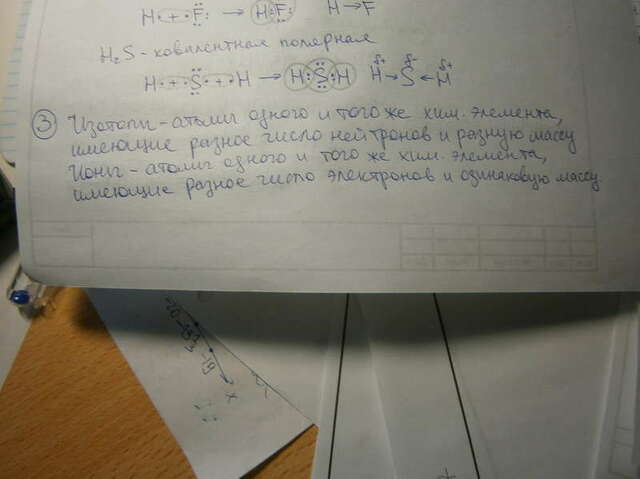 H· + ·F̈: → H:F̈: H→F
H₂S - ковалентная полярная
H· + ·S̈· + ·H → H:S̈:H Hδ+ → Sδ- ← Hδ+
③ Изотопы - атомы одного и того же хим. элемента,
имеющие разное число нейтронов и разную массу
Ионы - атомы одного и того же хим. элемента,
имеющие разное число электронов и одинаковую массу.
x